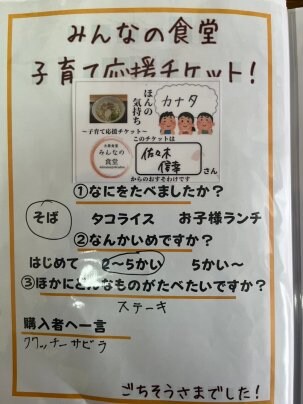 みんなの食堂
子育て応援チケット！
ほんの
気持ち
カナタ
〜子育て応援チケット〜
このチケットは
みんなの
食堂
佐々木
さん
からのおすそわけです
①なにをたべましたか？
そば タコライス お子様ランチ
②なんかいめですか？
はじめて 2〜5かい 5かい〜
③ほかにどんなものがたべたいですか？
ステーキ
購入者へ一言
クワッチーサビラ
ごちそうさまでした！